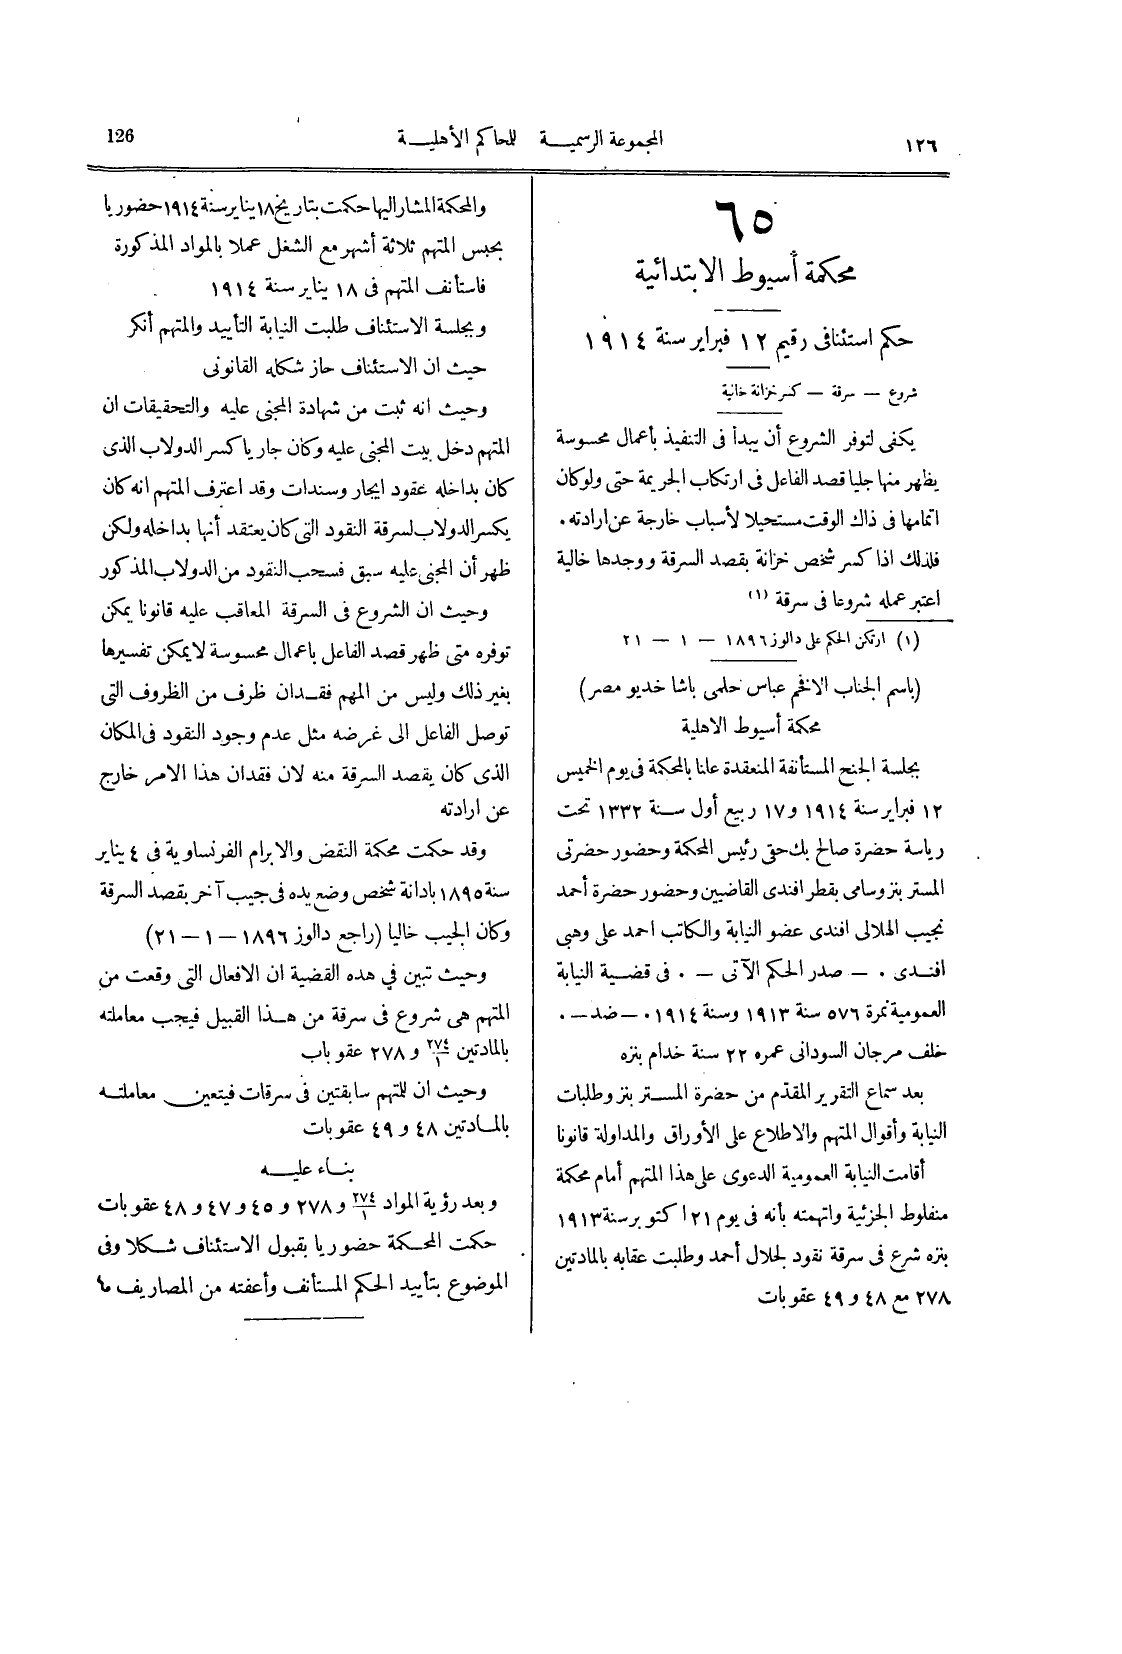 ١٢٦
المجموعة الرسمية للمحاكم الأهلية
126
٦٥
محكمة أسيوط الابتدائية
حكم استئنافى رقيم ١٢ فبراير سنة ١٩١٤
شروع — سرقة — كسر خزانة خالية
يكفى لتوفر الشروع أن يبدأ فى التنفيذ بأعمال محسوسة
يظهر منها جليا قصد الفاعل فى ارتكاب الجريمة حتى ولو كان
اتمامها فى ذاك الوقت مستحيلا لأسباب خارجة عن ارادته.
فلذلك اذا كسر شخص خزانة بقصد السرقة ووجدها خالية
اعتبر عمله شروعا فى سرقة (١)
(١) ارتكن الحكم على دالوز ١٨٩٦ — ١ — ٢١
(باسم الجناب الافخم عباس حلمى باشا خديو مصر)
محكمة أسيوط الاهلية
بجلسة الجنح المستأنفة المنعقدة علنا بالمحكمة فى يوم الخميس
١٢ فبراير سنة ١٩١٤ و١٧ ربيع أول سنة ١٣٣٢ تحت
رياسة حضرة صالح بك حقى رئيس المحكمة وحضور حضرتى
المستر بنز وسامى بقطر افندى القاضيين وحضور حضرة أحمد
نجيب الهلالى افندى عضو النيابة والكاتب احمد على وهبى
افندى. — صدر الحكم الآتى —. فى قضية النيابة
العمومية نمرة ٥٧٦ سنة ١٩١٣ وسنة ١٩١٤. — ضد —.
خلف مرجان السودانى عمره ٢٢ سنة خدام بنزه
بعد سماع التقرير المقدم من حضرة المستر بنز وطلبات
النيابة وأقوال المتهم والاطلاع على الأوراق والمداولة قانونا
أقامت النيابة العمومية الدعوى على هذا المتهم أمام محكمة
منفلوط الجزئية واتهمته بأنه فى يوم ٢١ اكتوبر سنة ١٩١٣
بنزه شرع فى سرقة نقود لجلال أحمد وطلبت عقابه بالمادتين
٢٧٨ مع ٤٨ و ٤٩ عقوبات
والمحكمة المشار اليها حكمت بتاريخ ١٨ يناير سنة ١٩١٤ حضوريا
بحبس المتهم ثلاثة أشهر مع الشغل عملا بالمواد المذكورة
فاستأنف المتهم فى ١٨ يناير سنة ١٩١٤
وبجلسة الاستئناف طلبت النيابة التأييد والمتهم أنكر
حيث ان الاستئناف حاز شكله القانونى
وحيث انه ثبت من شهادة المجنى عليه والتحقيقات ان
المتهم دخل بيت المجنى عليه وكان جاريا كسر الدولاب الذى
كان بداخله عقود ايجار وسندات وقد اعترف المتهم انه كان
يكسر الدولاب لسرقة النقود التى كان يعتقد أنها بداخله ولكن
ظهر أن المجنى عليه سبق فسحب النقود من الدولاب المذكور
وحيث ان الشروع فى السرقة المعاقب عليه قانونا يمكن
توفره متى ظهر قصد الفاعل باعمال محسوسة لا يمكن تفسيرها
بغير ذلك وليس من المهم فقدان ظرف من الظروف التى
توصل الفاعل الى غرضه مثل عدم وجود النقود فى المكان
الذى كان يقصد السرقة منه لان فقدان هذا الامر خارج
عن ارادته
وقد حكمت محكمة النقض والابرام الفرنساوية فى ٤ يناير
سنة ١٨٩٥ بادانة شخص وضع يده فى جيب آخر بقصد السرقة
وكان الجيب خاليا (راجع دالوز ١٨٩٦ — ١ — ٢١)
وحيث تبين في هذه القضية ان الافعال التى وقعت من
المتهم هى شروع فى سرقة من هذا القبيل فيجب معاملته
بالمادتين ٢٧٤/١ و ٢٧٨ عقوباب
وحيث ان للمتهم سابقتين فى سرقات فيتعين معاملته
بالمادتين ٤٨ و ٤٩ عقوبات
بناء عليه
وبعد رؤية المواد ٢٧٤/١ و ٢٧٨ و ٤٥ و ٤٧ و ٤٨ عقوبات
حكمت المحكمة حضوريا بقبول الاستئناف شكلا وفى
الموضوع بتأييد الحكم المستأنف وأعفته من المصاريف